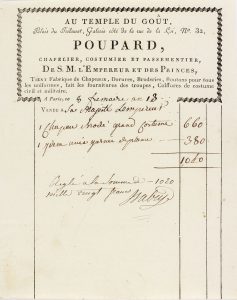 AU TEMPLE DU GOÛT,
Palais du Tribunat, Galerie côté de la rue de la Loi, N.º 32,
POUPARD,
CHAPELIER, COSTUMIER ET PASSEMENTIER,
DE S. M. L'EMPEREUR ET DES PRINCES,
TIENT Fabrique de Chapeaux, Dorures, Broderies, Boutons pour tous
les uniformes, fait les fournitures des troupes, Coiffures de costume
civil et militaire.
A Paris, ce 8 frimaire an 13
VENDU à Sa Majesté L'empereur
1 Chapeau brodé grand Costume 660
1 380
1040
Réglé à la Somme de 1020
mille vingt francs